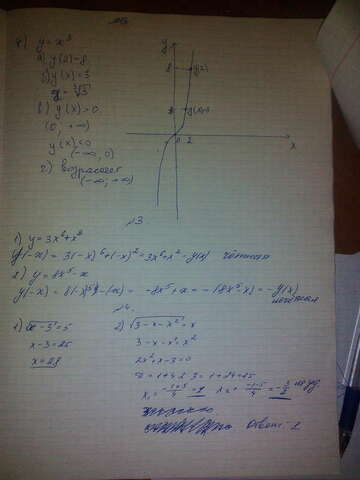 y) y = x³
а) y(2)=8
б) y(x)=3
x = ∛3
в) y(x)>0
(0; +∞)
y(x)<0
(-∞, 0)
г) возрастает
(-∞; +∞)
y
8
y(2)
3
0 2
x
√3.
1) y = 3x⁶+x²
y(-x) = 3(-x)⁶+(-x)² = 3x⁶+x² = y(x) чётная
2) y = 8x⁵-x
y(-x) = 8(-x)⁵-(-x) = -8x⁵+x = -(8x⁵-x) = -y(x)
нечётная
√4.
1) √x-3 = 5
x-3=25
x=28
2) √3-x-x² = x
3-x-x²=x²
2x²+x-3=0
D = 1+4·2·3 = 1+24=25
x₁ = (-1+5)/4 = 1 x₂ = (-1-5)/4 = -3/2
Ответ: 1